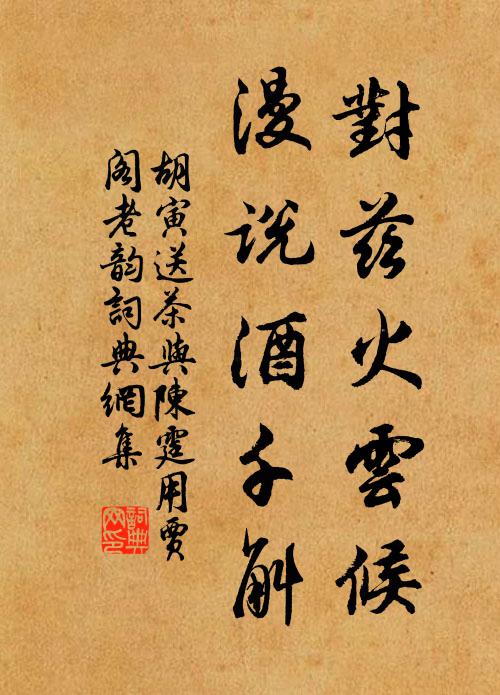 對茲火雲候
漫說酒千斛
胡寅送茶與陳霆用賈
閣老韵詞典網集
詞典